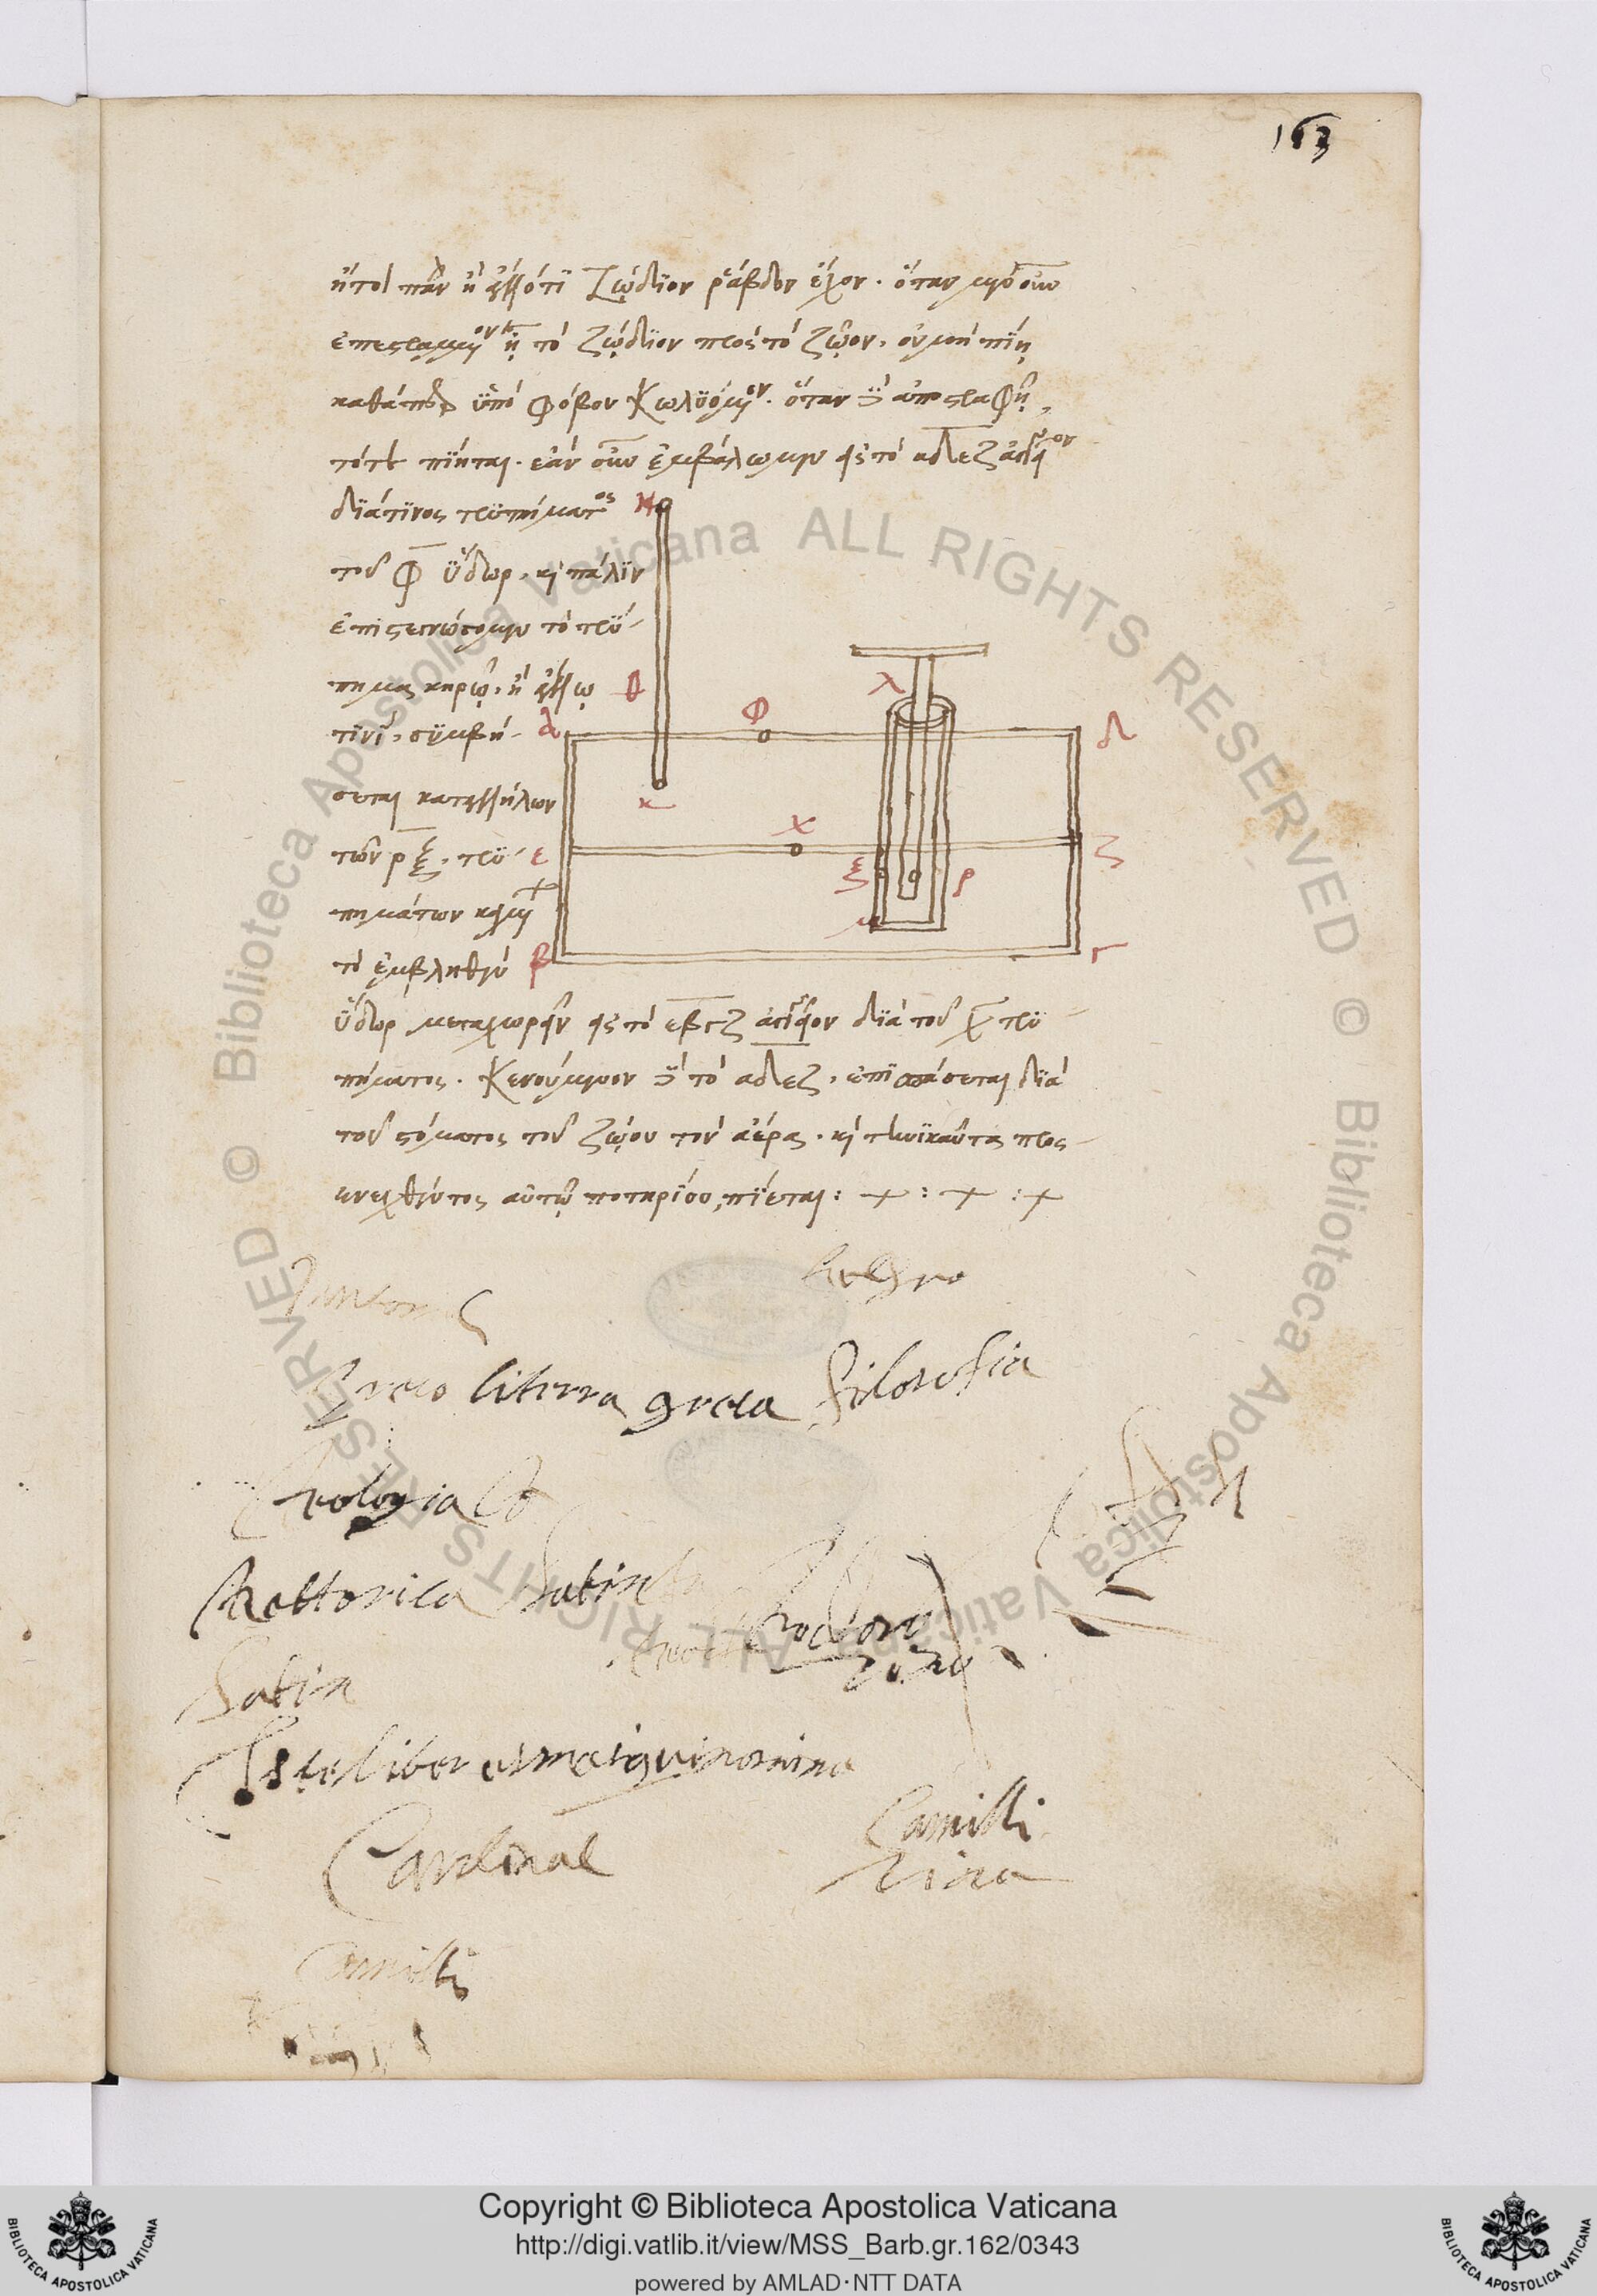 163
ἤτοι πὰν ἢ ἄλλό τι ζῴδιον ῥάβδον ἔχον. ὅταν μὲν οὖν
ἐπεστραμμένον ᾖ τὸ ζῴδιον πρὸς τὸ ζῷον, οὐ μὴ πίῃ
καθάπερ ὑπὸ φόβου κωλυόμενον. ὅταν δὲ ἀποστραφῇ,
τότε πίεται. ἐὰν οὖν ἐμβάλωμεν εἰς τὸ αδεζ ἀγγεῖον
διά τινος τρυπήματος
τοῦ φ ὕδωρ, καὶ πάλιν
ἐπιστεγνώσωμεν τὸ τρύ-
πημα κηρῷ, ἢ ἄλλῳ
τινὶ, συμβή-
σεται καταλλήλων
τῶν ρ ξ, τρυ-
πημάτων κειμένων
τὸ ἐμβληθὲν
ὕδωρ μεταχωρεῖν εἰς τὸ εβγζ ἀγγεῖον διὰ τοῦ χ τρυ-
πήματος. κενούμενον δὲ τὸ αδεζ, ἐπισπάσεται διὰ
τοῦ στόματος τοῦ ζῴου τὸν ἀέρα. καὶ τηνικαῦτα προς-
ενεχθέντος αὐτῷ ποτηρίου, πίεται: + : + : +
Η
θ
α
κ
φ
λ
δ
χ
ε
ζ
ξ
ρ
μ
β
γ
Greco literra greca filosofia
teologia
Rettorica Latin
Latin
Iste liber es mei qui nomina
Cardinal
Camilli
Camilli
Copyright © Biblioteca Apostolica Vaticana
http://digi.vatlib.it/view/MSS_Barb.gr.162/0343
powered by AMLAD·NTT DATA
BIBLIOTECA APOSTOLICA VATICANA
BIBLIOTECA APOSTOLICA VATICANA
© Biblioteca Apostolica Vaticana ALL RIGHTS RESERVED
© Biblioteca Apostolica Vaticana ALL RIGHTS RESERVED